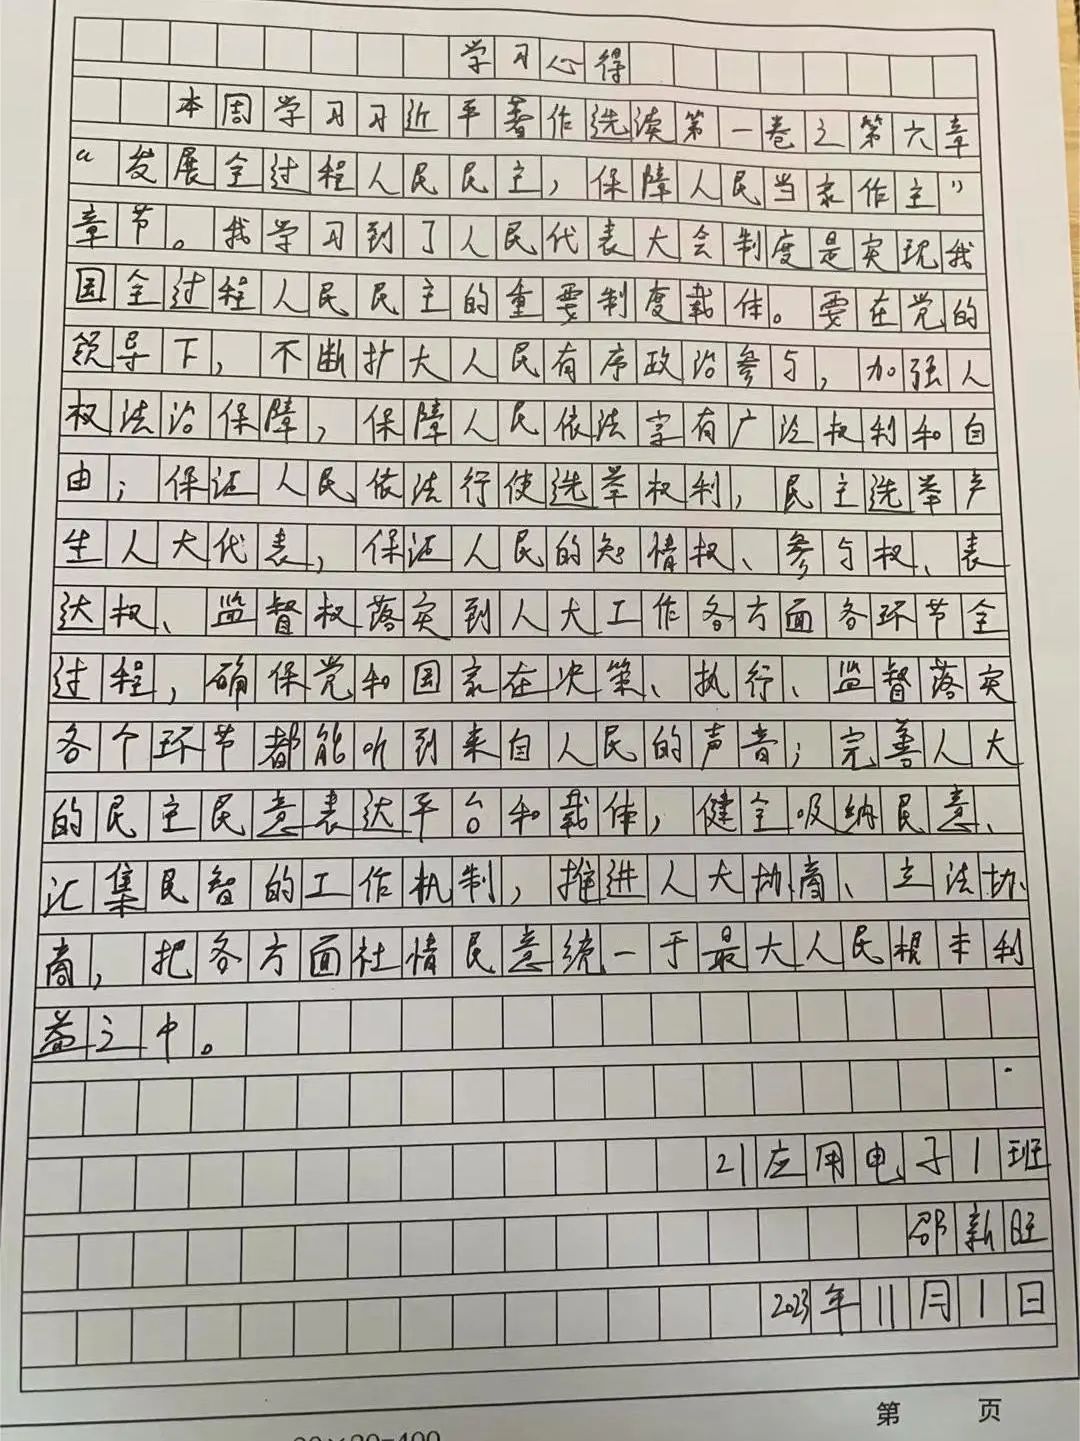 学习心得
本周学习习近平著作选读第一卷之第六章
“发展全过程人民民主，保障人民当家作主”
章节。我学习到了人民代表大会制度是实现我
国全过程人民民主的重要制度载体。要在党的
领导下，不断扩大人民有序政治参与，加强人
权法治保障，保障人民依法享有广泛权利和自
由；保证人民依法行使选举权利，民主选举产
生人大代表，保证人民的知情权、参与权、表
达权、监督权落实到人大工作各方面各环节全
过程，确保党和国家在决策、执行、监督落实
各个环节都能听到来自人民的声音；完善人大
的民主民意表达平台和载体，健全吸纳民意、
汇集民智的工作机制，推进人大协商、立法协
商，把各方面社情民意统一于最大人民根本利
益之中。
21应用电子1班
邵新旺
2023年11月1日
第 页